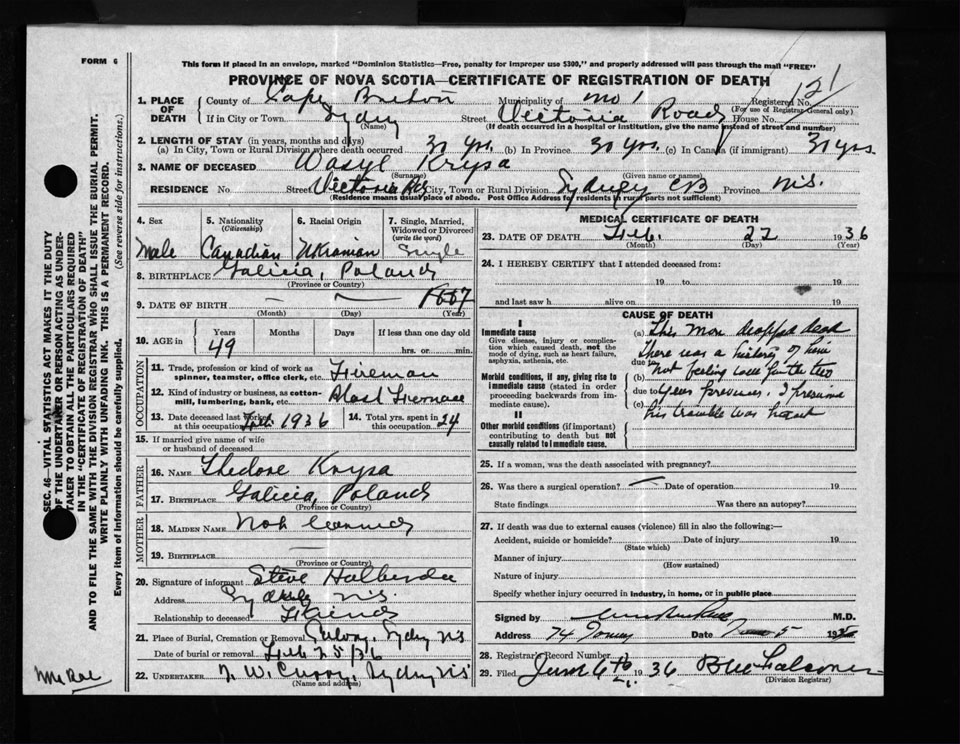 FORM 6
This form if placed in an envelope, marked "Dominion Statistics—Free, penalty for improper use $300," and properly addressed will pass through the mail "FREE"
PROVINCE OF NOVA SCOTIA—CERTIFICATE OF REGISTRATION OF DEATH
121
1. PLACE OF DEATH County of Cape Breton Municipality of No 1 Registered No.
(For use of Registrar-General only)
If in City or Town Sydney Street Victoria Road House No.
(Name) (If death occurred in a hospital or institution, give the name instead of street and number)
2. LENGTH OF STAY (in years, months and days)
(a) In City, Town or Rural Division where death occurred 30 yrs. (b) In Province 30 yrs. (c) In Canada (if immigrant) 30 yrs.
3. NAME OF DECEASED Wasyl Krysa
(Surname) (Given name or names)
RESIDENCE No. Street Victoria Rd City, Town or Rural Division Sydney CB Province N.S.
(Residence means usual place of abode. Post Office Address for residents in rural parts not sufficient)
4. Sex
Male
5. Nationality
(Citizenship)
Canadian
6. Racial Origin
Ukranian
7. Single, Married, Widowed or Divorced
(write the word)
Single
8. BIRTHPLACE Galicia, Poland
(Province or Country)
9. DATE OF BIRTH — — 1887
(Month) (Day) (Year)
10. AGE in Years Months Days If less than one day old
49 hrs. or min.
OCCUPATION
11. Trade, profession or kind of work as spinner, teamster, office clerk, etc. Fireman
12. Kind of industry or business, as cotton-mill, lumbering, bank, etc. Blast Furnace
13. Date deceased last worked at this occupation Feb. 1936
14. Total yrs. spent in this occupation 24
15. If married give name of wife or husband of deceased
FATHER
16. NAME Thedore Krysa
17. BIRTHPLACE Galicia, Poland
(Province or Country)
MOTHER
18. MAIDEN NAME Not
19. BIRTHPLACE —
(Province or Country)
20. Signature of informant Steve
Address Sydney N.S.
Relationship to deceased Friend
21. Place of Burial, Cremation or Removal Sydney NS
Date of burial or removal Feb 25/36
22. UNDERTAKER W. Curry, Sydney NS
(Name and address)
MEDICAL CERTIFICATE OF DEATH
23. DATE OF DEATH Feb. 22 1936
(Month) (Day) (Year)
24. I HEREBY CERTIFY that I attended deceased from:
19 to 19
and last saw h alive on 19
CAUSE OF DEATH
I
Immediate cause
Give disease, injury or complication which caused death, not the mode of dying, such as heart failure, asphyxia, asthenia, etc.
Morbid conditions, if any, giving rise to immediate cause (stated in order proceeding backwards from immediate cause).
II
Other morbid conditions (if important) contributing to death but not causally related to immediate cause.
(a) This man dropped dead
due to There was a history of him
(b) not feeling well for the two
due to years previous. I presume
(c) his trouble was heart
25. If a woman, was the death associated with pregnancy?
26. Was there a surgical operation? — Date of operation 19
State findings Was there an autopsy?
27. If death was due to external causes (violence) fill in also the following:—
Accident, suicide or homicide? Date of injury 19
(State which)
Manner of injury
(How sustained)
Nature of injury
Specify whether injury occurred in industry, in home, or in public place
Signed by M.D.
Address 74 Date 5 19
28. Registrar's Record Number
29. Filed June 6th 1936
(Division Registrar)
SEC. 46—VITAL STATISTICS ACT MAKES IT THE DUTY
OF THE UNDERTAKER OR PERSON ACTING AS UNDER-
TAKER TO OBTAIN ALL THE PARTICULARS REQUIRED
IN THE "CERTIFICATE OF REGISTRATION OF DEATH"
AND TO FILE THE SAME WITH THE DIVISION REGISTRAR WHO SHALL ISSUE THE BURIAL PERMIT.
WRITE PLAINLY WITH UNFADING INK. THIS IS A PERMANENT RECORD.
Every item of Information should be carefully supplied. (See reverse side for instructions.)
McRae